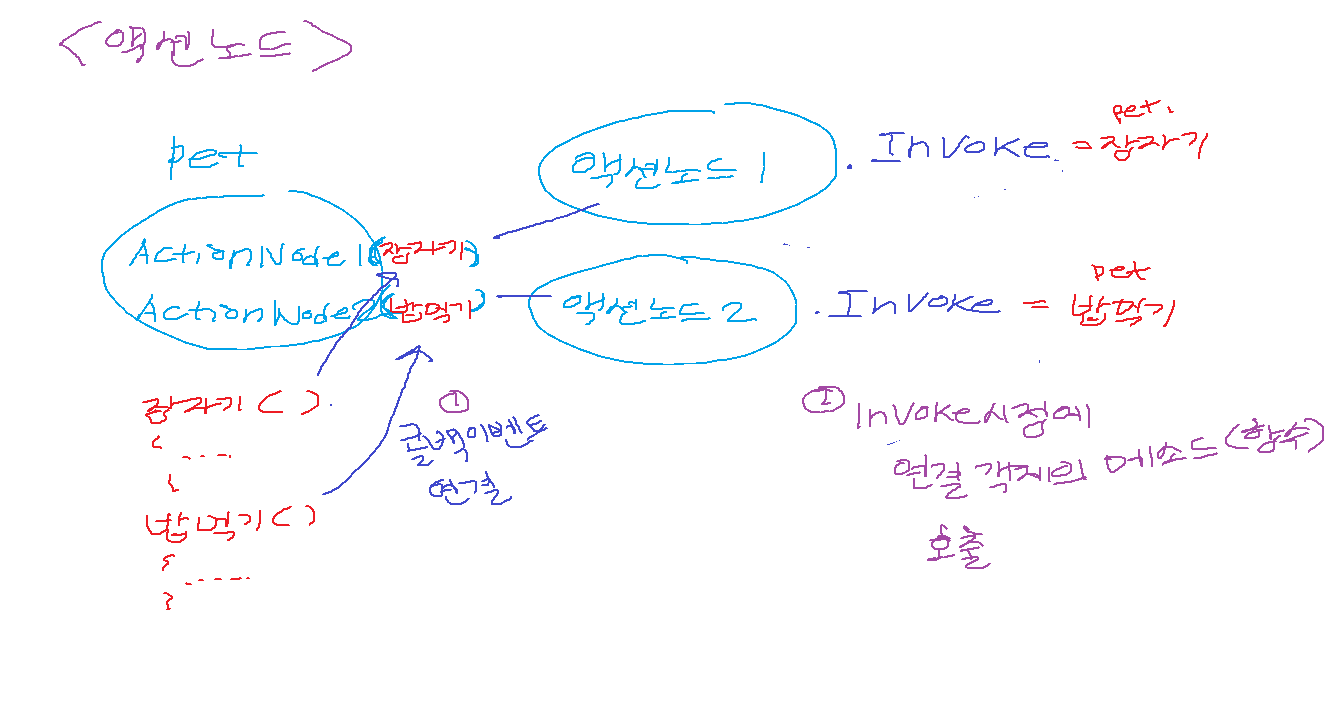 <액션노드>
pet
ActionNode1(잠자기)
ActionNode2(밥먹기)
액션노드1 . Invoke = pet. 잠자기
액션노드2 . Invoke = pet 밥먹기
잠자기()
{
.....
}
밥먹기()
{
......
}
① 콜백이벤트
연결
② Invoke시점에
연결 객체의 메소드(함수)
호출